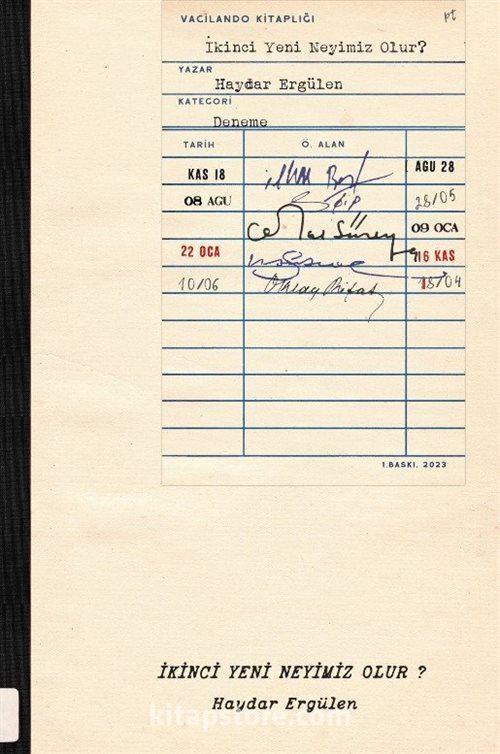 VACİLANDO KİTAPLIĞI
pt
İkinci Yeni Neyimiz Olur?
YAZAR
Haydar Ergülen
KATEGORİ
Deneme
TARİH Ö. ALAN
KAS 18 İlhan Berk AGU 28
08 AGU 28/05
Cemal Süreya 09 OCA
22 OCA 16 KAS
10/06 Oktay Rifat 18/04
1.BASKI. 2023
İKİNCİ YENİ NEYİMİZ OLUR ?
Haydar Ergülen
kitapstore.com